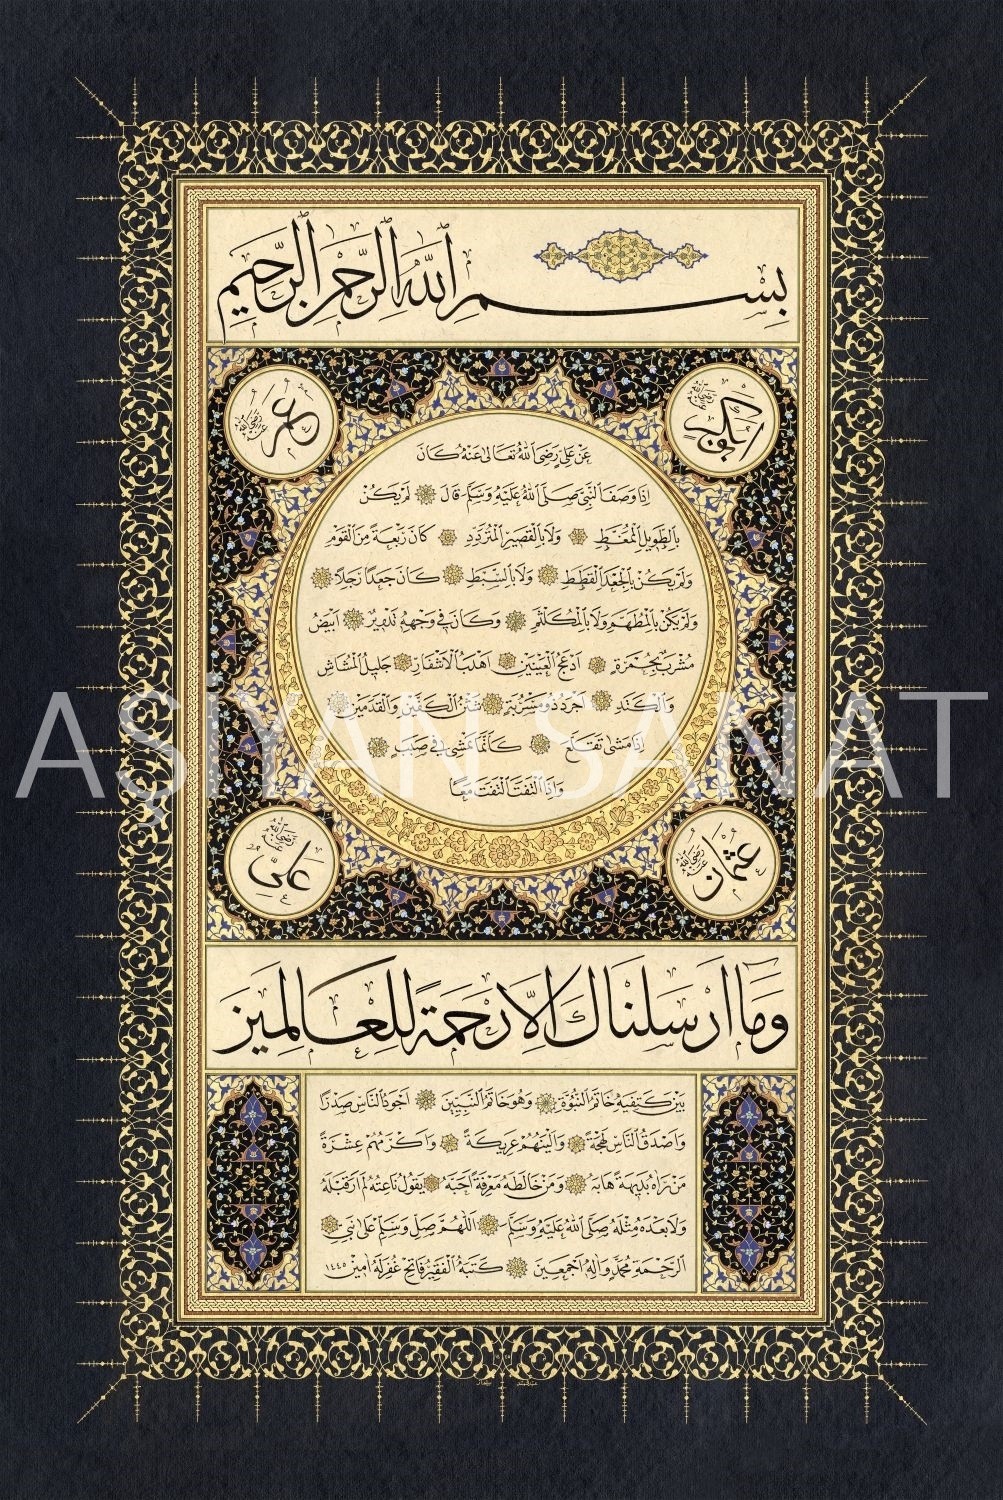 بِسْمِ اللّٰهِ الرَّحْمٰنِ الرَّحِيمِ
ابوبكر رضى الله عنه
عمر رضى الله عنه
عَنْ عَلِيٍّ رَضِيَ اللّٰهُ تَعَالٰى عَنْهُ كَانَ
اِذَا وَصَفَ النَّبِيَّ صَلَّى اللّٰهُ عَلَيْهِ وَسَلَّمَ قَالَ لَمْ يَكُنْ
بِالطَّوِيلِ الْمُمَّغِطِ وَلَا بِالْقَصِيرِ الْمُتَرَدِّدِ كَانَ رَبْعَةً مِنَ الْقَوْمِ
وَلَمْ يَكُنْ بِالْجَعْدِ الْقَطَطِ وَلَا بِالسَّبْطِ كَانَ جَعْدًا رَجِلًا
وَلَمْ يَكُنْ بِالْمُطَهَّمِ وَلَا بِالْمُكَلْثَمِ وَكَانَ فِي وَجْهِهِ تَدْوِيرٌ اَبْيَضُ
مُشْرَبٌ بِحُمْرَةٍ اَدْعَجُ الْعَيْنَيْنِ اَهْدَبُ الْاَشْفَارِ جَلِيلُ الْمُشَاشِ
وَالْكَتَدِ اَجْرَدُ ذُو مَسْرُبَةٍ شَثْنُ الْكَفَّيْنِ وَالْقَدَمَيْنِ
اِذَا مَشٰى تَقَلَّعَ كَاَنَّمَا يَمْشِي فِي صَبَبٍ
وَاِذَا الْتَفَتَ الْتَفَتَ مَعًا
عثمان رضى الله عنه
على رضى الله عنه
وَمَا اَرْسَلْنَاكَ اِلَّا رَحْمَةً لِلْعَالَمِينَ
بَيْنَ كَتِفَيْهِ خَاتَمُ النُّبُوَّةِ وَهُوَ خَاتَمُ النَّبِيِّينَ اَجْوَدُ النَّاسِ صَدْرًا
وَاَصْدَقُ النَّاسِ لَهْجَةً وَاَلْيَنُهُمْ عَرِيكَةً وَاَكْرَمُهُمْ عِشْرَةً
مَنْ رَاٰهُ بَدِيهَةً هَابَهُ وَمَنْ خَالَطَهُ مَعْرِفَةً اَحَبَّهُ يَقُولُ نَاعِتُهُ لَمْ اَرَ قَبْلَهُ
وَلَا بَعْدَهُ مِثْلَهُ صَلَّى اللّٰهُ عَلَيْهِ وَسَلَّمَ اَللّٰهُمَّ صَلِّ وَسَلِّمْ عَلٰى نَبِيِّ
الرَّحْمَةِ مُحَمَّدٍ وَاٰلِهِ اَجْمَعِينَ كَتَبَهُ الْفَقِيرُ فَاتِحْ غُفِرَ لَهُ اٰمِينَ ١٤٤٥
AŞİYAN SANAT